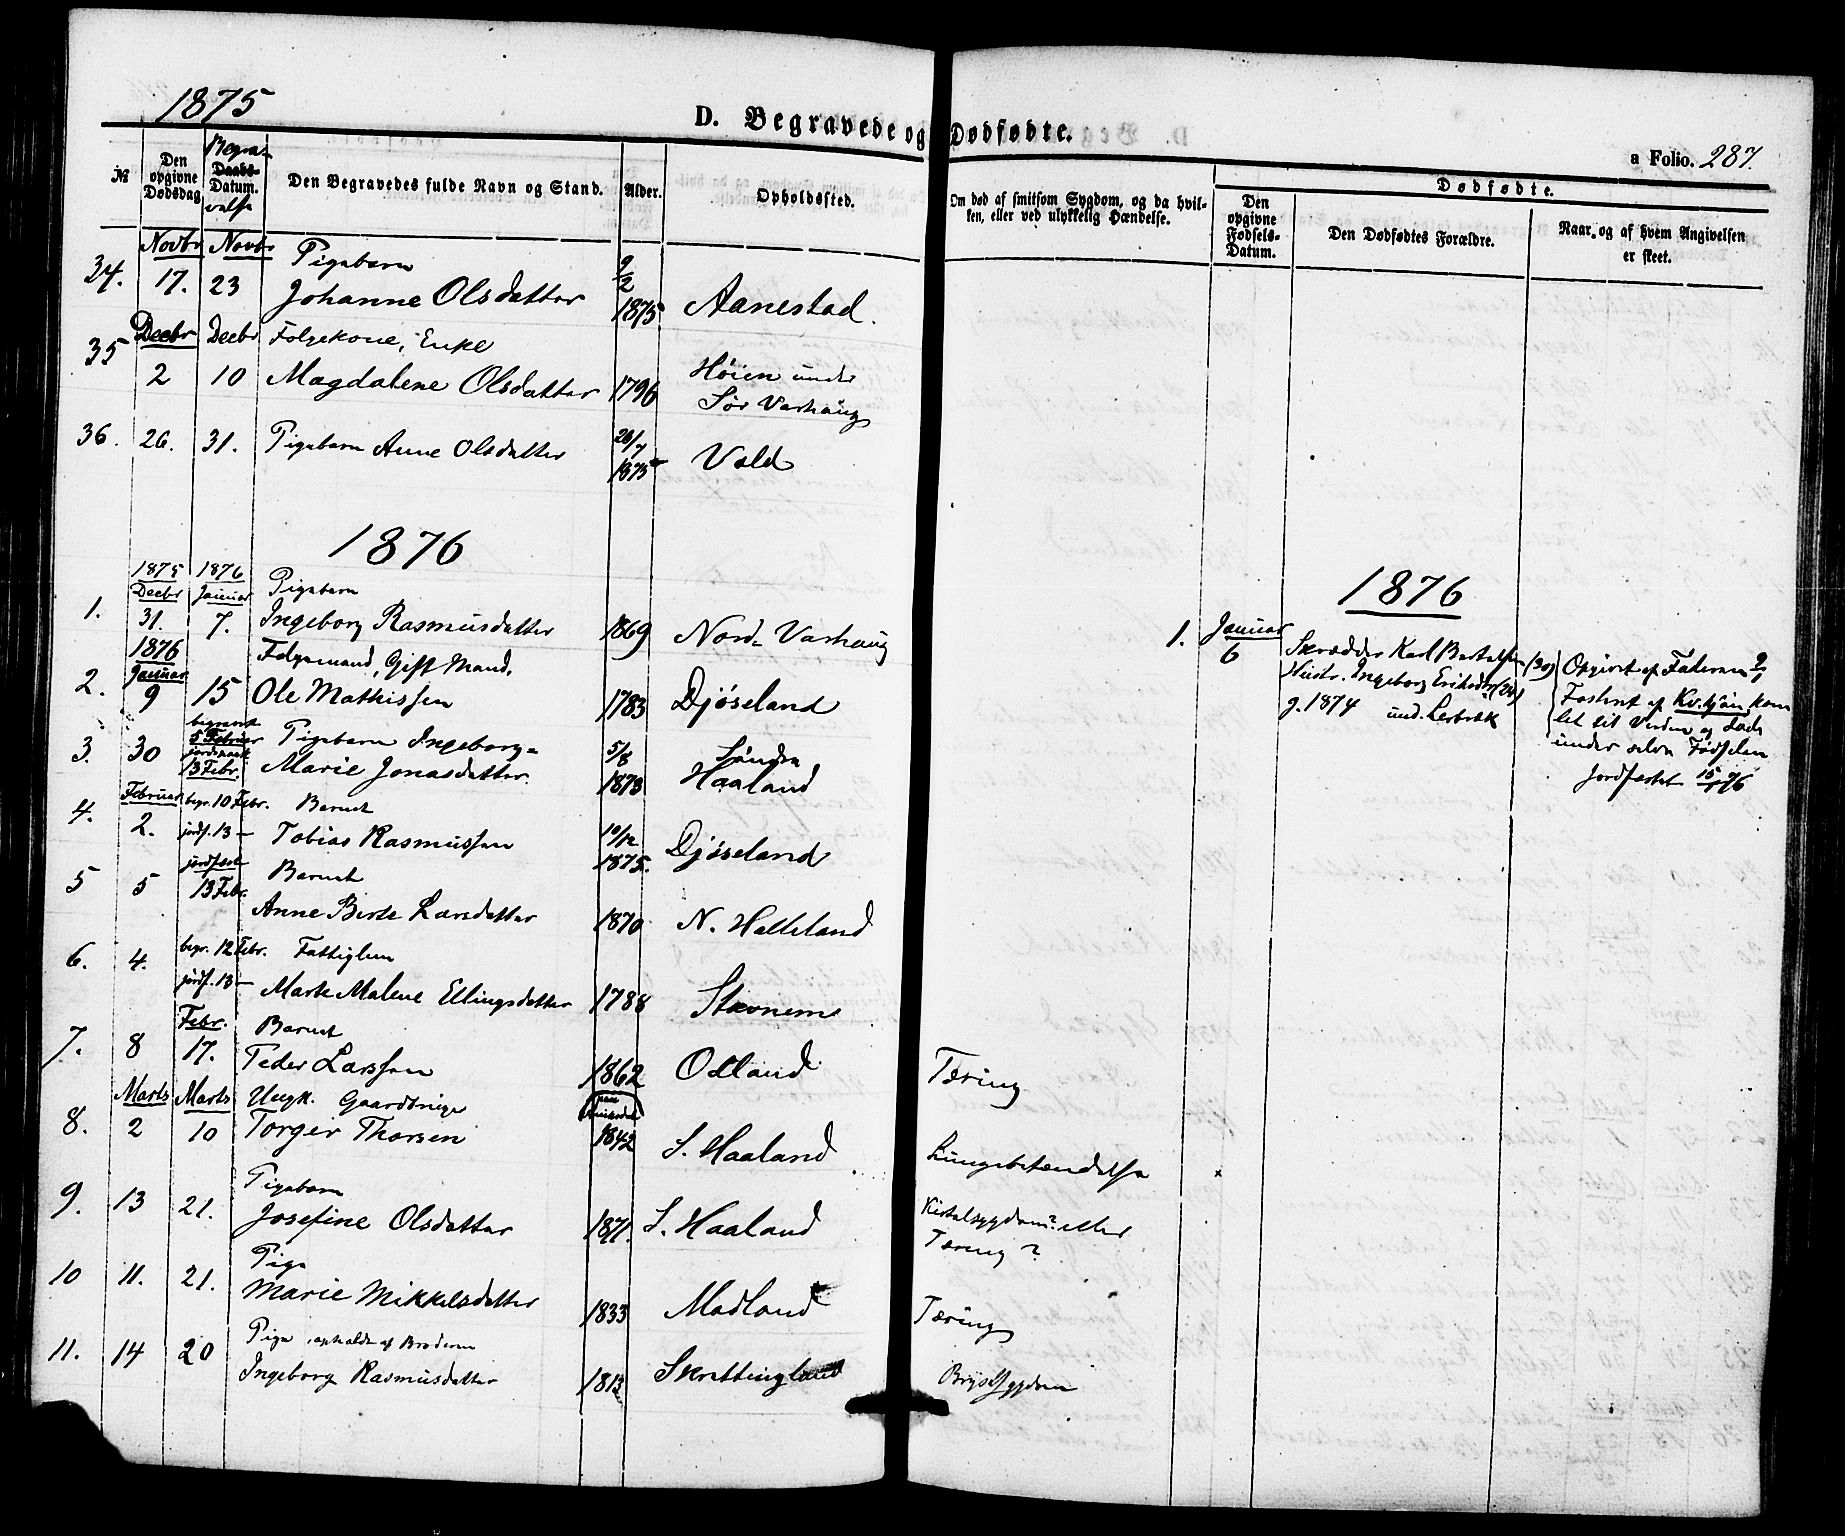 1875
D. Begravede og Dødfødte.
a Folio. 287.
№
Den opgivne Dødsdag
Begra-
Daabs-
Datum.
velse
Den Begravedes fulde Navn og Stand.
Alder.
Opholdssted.
Om død af smitsom Sygdom, og da hvil-
ken, eller ved ulykkelig Hændelse.
Dødfødte.
Den opgivne Fødsels-Datum.
Den Dødfødtes Forældre.
Naar, og af hvem Angivelsen
er skeet.
Novbr Novbr Pigebarn 9/2
34. 17. 23 Johanne Olsdatter 1875 Aanestad.
Decbr Decbr Folgekone, Enke
35 2 10 Magdalene Olsdatter 1796 Høien under
Sör Varhaug
36. 26. 31. Pigebarn Anne Olsdatter 1875 Vold
1876
1875 1876
Decbr Januar Pigebarn
1. 31. 7. Ingeborg Rasmusdatter 1869 Nord-Varhaug
1876 Folgemand, Gift Mand.
Januar
2. 9 15 Ole Mathissen 1783 Djøseland
begravet
5 Februar Pigebarn Ingeborg- 5/8 Söndre
3. 30 13 Febr. Marie Jonasdatter. 1873 Haaland
Februar begr. 10 Febr. Barnet 10/12
4. 2. jordf. 13 — Tobias Rasmussen 1875. Djøseland
jordfæst Barnet
5 5 13 Febr. Anne Berte Larsdatter 1870 N. Helleland
begr. 12 Febr. Fattiglem
6. 4. jordf. 13 — Marte Malene Ellingsdatter 1788 Stavnem
Febr. Barnet
7. 8 17. Peder Larssen 1862 Odland Tæring
Marts Marts Ungk. Gaardbruger
8. 2 10 Torger Thorsen 1842 S. Haaland Lungebetændelse
Pigebarn
9. 13 21. Josefine Olsdatter 1871. S. Haaland Kirtelsygdom? eller
Tæring?
Pige
10 11. 21. Marie Mikkelsdatter 1833 Madland Tæring
Pige, opholdt af Broderen
11. 14 20 Ingeborg Rasmusdatter 1813 Skrettingland Brystsygdom
1876
1. Januar
6
Skrædder Karl Bertelsen (30)
Hustr. Ingeborg Eriksdtr (24)
g. 1874 und. Lerbræk
Opgivet af Faderen
Fosteret af Kv.kjön kom
let til Verden og døde
under selve Fødselen
Jordfæstet 15/1 76